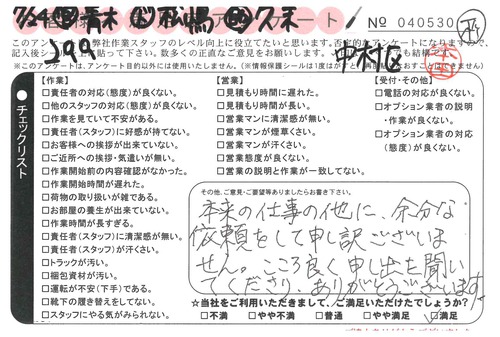 No 040530
399
中村区
このアンケートは弊社作業スタッフのレベル向上に役立てたいと思います。
チェックリスト
【作業】
□責任者の対応(態度)が良くない。
□他のスタッフの対応(態度)が良くない。
□作業を見ていて不安がある。
□責任者(スタッフ)に好感が持てない。
□お客様への挨拶が出来ていない。
□ご近所への挨拶・気遣いが無い。
□作業開始前の内容確認がなかった。
□作業開始時間が遅れた。
□荷物の取り扱いが雑である。
□お部屋の養生が出来ていない。
□作業時間が長すぎる。
□責任者(スタッフ)に清潔感が無い。
□責任者(スタッフ)が汗くさい。
□トラックが汚い。
□梱包資材が汚い。
□運転が不安(下手)である。
□靴下の履き替えをしてない。
□スタッフにやる気がみられない。
【営業】
□見積もり時間に遅れた。
□見積もり時間が長い。
□営業マンに清潔感が無い。
□営業マンが煙草くさい。
□営業マンが汗くさい。
□営業態度が良くない。
□営業の説明と作業が一致してない。
【受付・その他】
□電話の対応が良くない。
□オプション業者の説明
・作業が良くない。
□オプション業者の対応
(態度)が良くない。
その他、ご意見・ご要望等ありましたらお書き下さい。
本来の仕事の他に、余分な
依頼をして申し訳ございま
せん。こころ良く申し出を聞い
てくださり、ありがとうございます。
☆当社をご利用いただきまして、ご満足いただけたでしょうか?
□不満 □やや不満 □普通 □やや満足 ☑満足